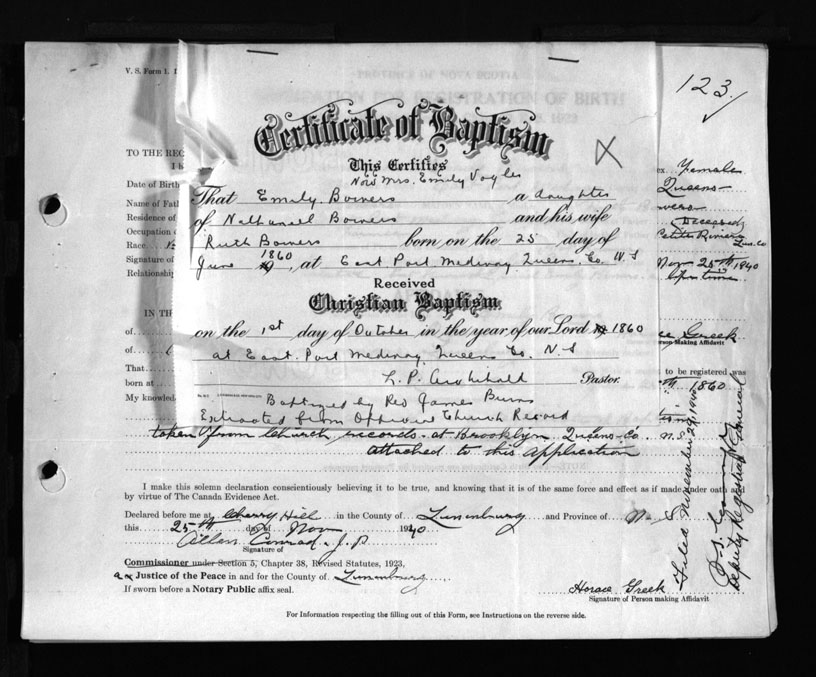 123.
V. S. Form 1.
PROVINCE OF NOVA SCOTIA
FOR REGISTRATION OF BIRTH
Certificate of Baptism
This Certifies
Now Mrs. Emily Vogler
TO THE REC
I h
Date of Birth
Name of Fath
Residence of
Occupation of
Race
Signature of
Relationship
IN THE
of
of
That
born at
My knowled
That Emily Bowers a daughter
of Nathaniel Bowers and his wife
Ruth Bowers born on the 25 day of
June 1860, at East Port Medway Queens Co N S
Received
Christian Baptism
on the 1st day of October in the year of our Lord 1860
at East Port Medway Queens Co. N. S
L. P. Archibald Pastor.
Baptized by Rev James Burns
Extracted from Church Record
ex Female
Queens
Deceased
Petite Riviere
Lun. Co
Nov 25th 1940
Greek
Person Making Affidavit
to be registered was
1860
taken from Church records at Brooklyn Queens Co. N.S.
attached to this application
I make this solemn declaration conscientiously believing it to be true, and knowing that it is of the same force and effect as if made under oath and
by virtue of The Canada Evidence Act.
Declared before me at Cherry Hill in the County of Lunenburg and Province of N. S
this 25th day of Nov 1940
Allen Conrad J. P
Signature of
Commissioner under Section 5, Chapter 38, Revised Statutes, 1923,
a Justice of the Peace in and for the County of Lunenburg
If sworn before a Notary Public affix seal.
Horace Greek
Signature of Person making Affidavit
For Information respecting the filling out of this Form, see Instructions on the reverse side.
Filed November 29, 1940
Deputy Registrar General